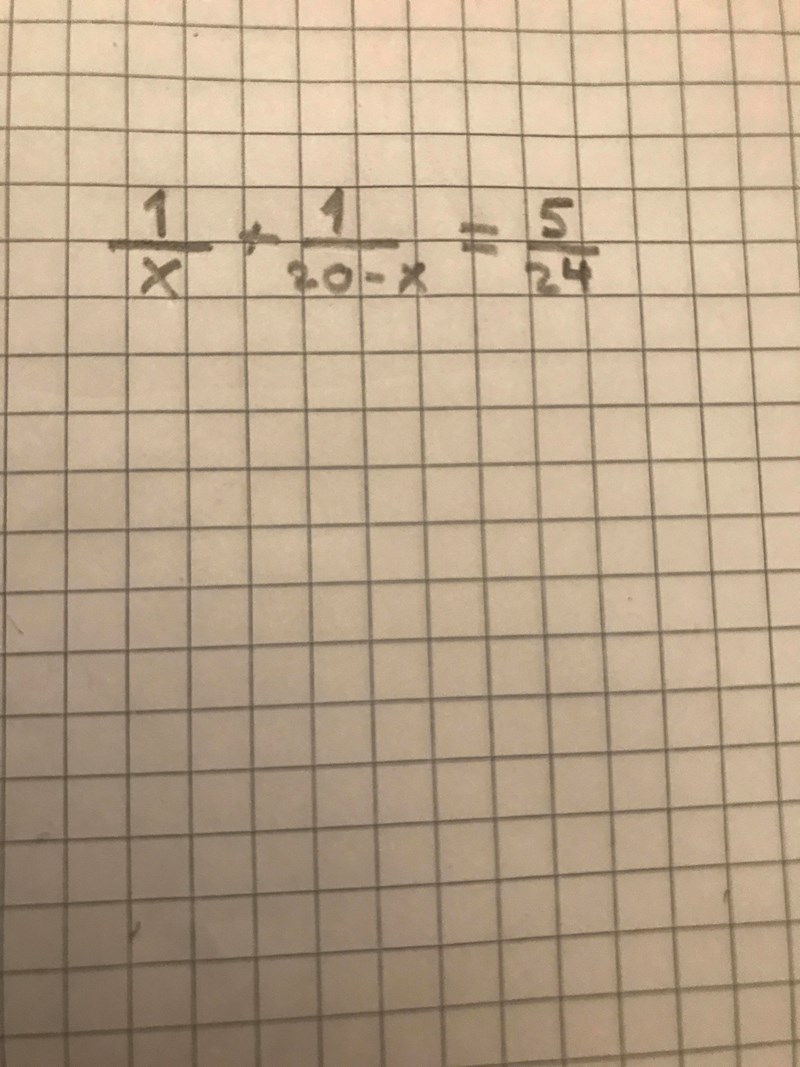 1/x + 1/(20-x) = 5/24